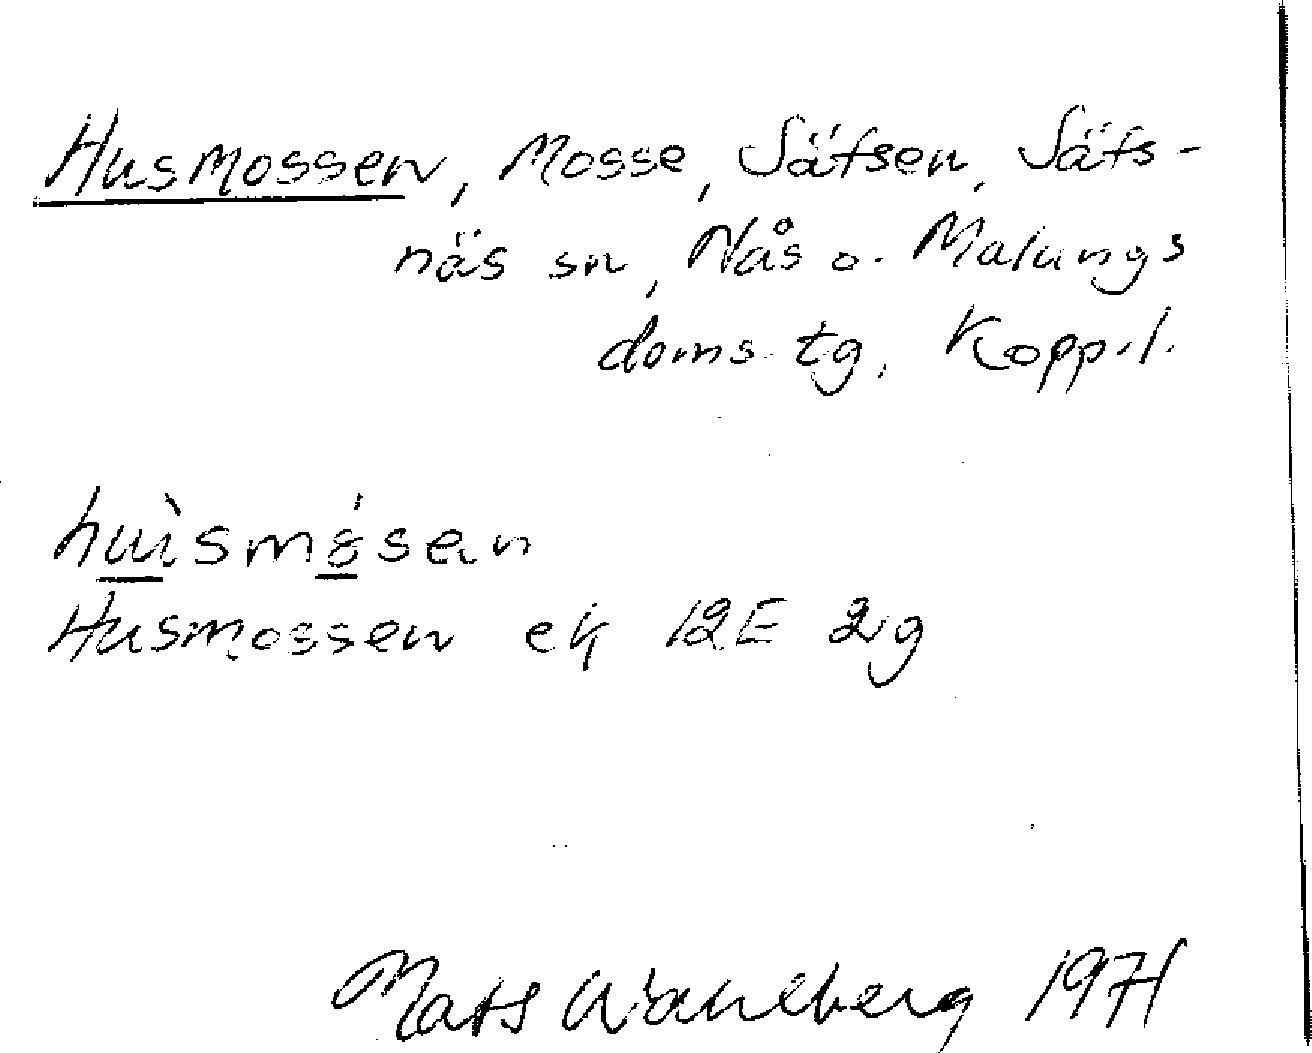 Husmossen, Mosse, Säfsen, Säfs-
näs sn, Nås o. Malungs
doms. tg, Kopp.l.
Husmossen ek 12E 2g
Mats Wahlberg 1971